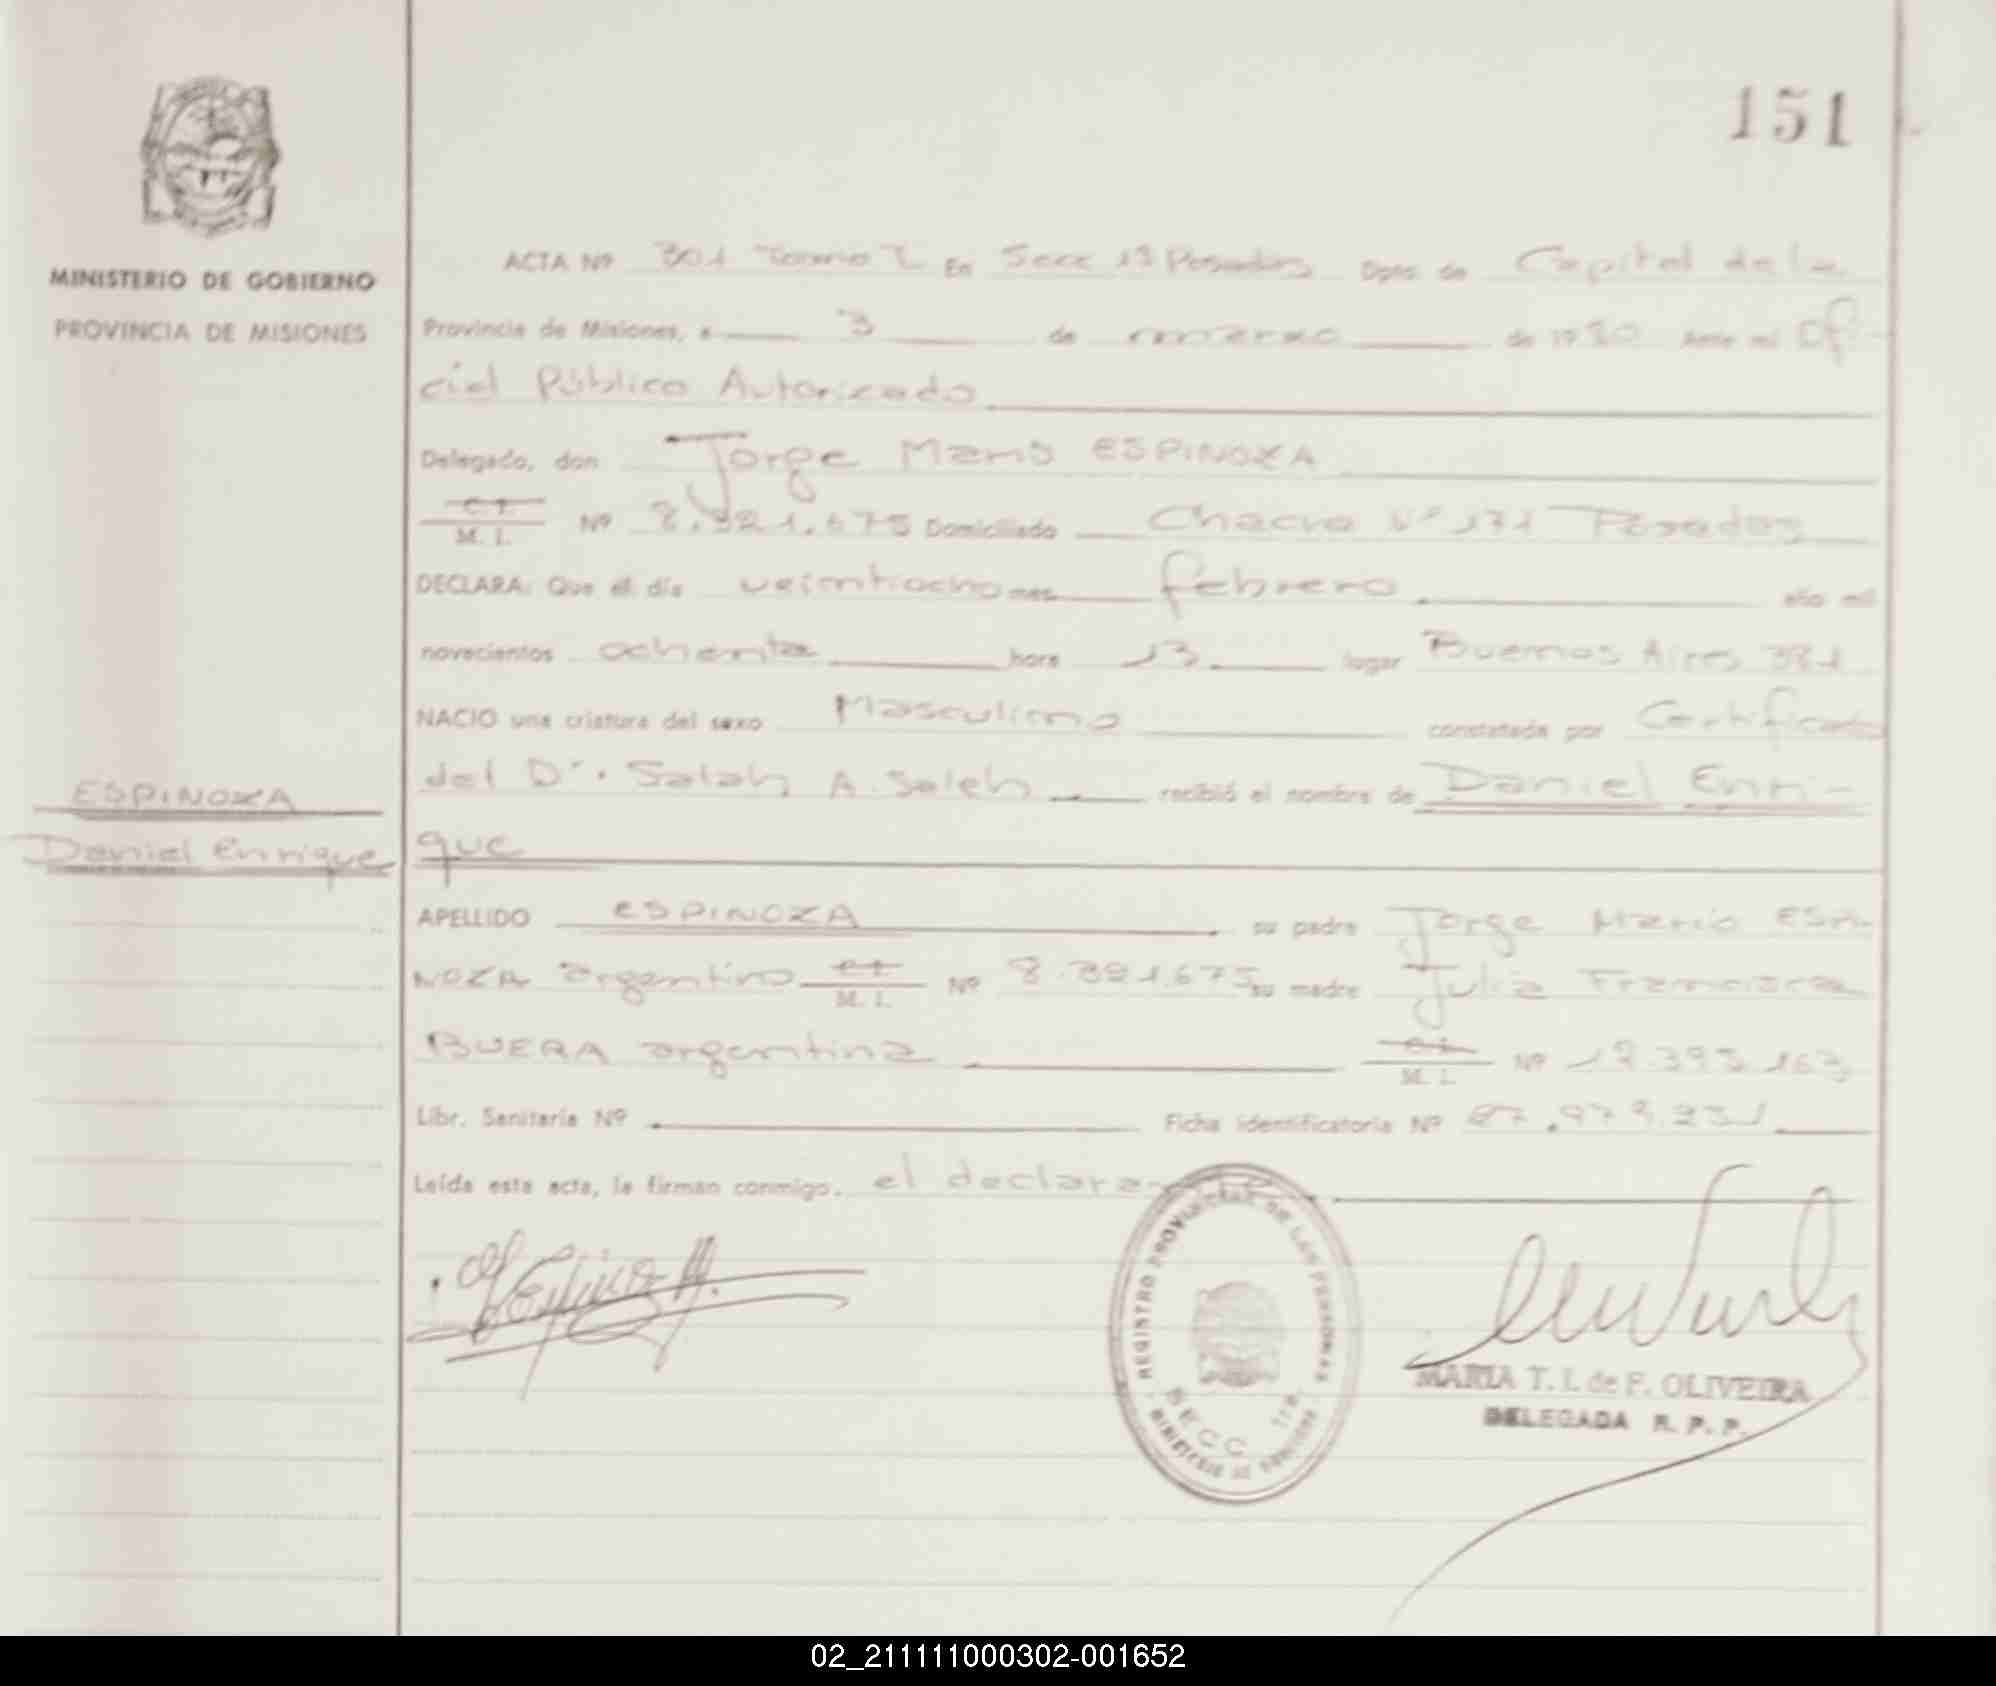 151
MINISTERIO DE GOBIERNO
PROVINCIA DE MISIONES
ACTA Nº 301 Tomo I En Secc 1ª Posadas Dpto. de Capital de la
Provincia de Misiones, a 3 de marzo de 1980 Ante mi Ofi-
cial Público Autorizado
Delegado, don Jorge Mario ESPINOZA
C. I.
M. I. Nº 8. 675 Domiciliado Chacra Nº 171 Posadas
DECLARA: Que el día veintiocho mes febrero año mil
novecientos ochenta hora 13 lugar Buenos Aires
NACIO una criatura del sexo Masculino constatada por Certificado
del Dr. Salah A. Saleh recibió el nombre de Daniel Enri-
que
ESPINOZA
Daniel Enrique
APELLIDO ESPINOZA su padre Jorge Mario ESPI-
NOZA argentino C. I.
M. I. Nº 8. 675 su madre Julia Francisca
BUERA argentina C. I.
M. I. Nº 163
Libr. Sanitaria Nº Ficha identificatoria Nº
Leída esta acta, la firman conmigo, el declarante
REGISTRO PROVINCIAL DE LAS PERSONAS
SECC 1ra
MINISTERIO DE GOBIERNO
MARIA T. I. de F. OLIVEIRA
DELEGADA R. P. P.
02_211111000302-001652